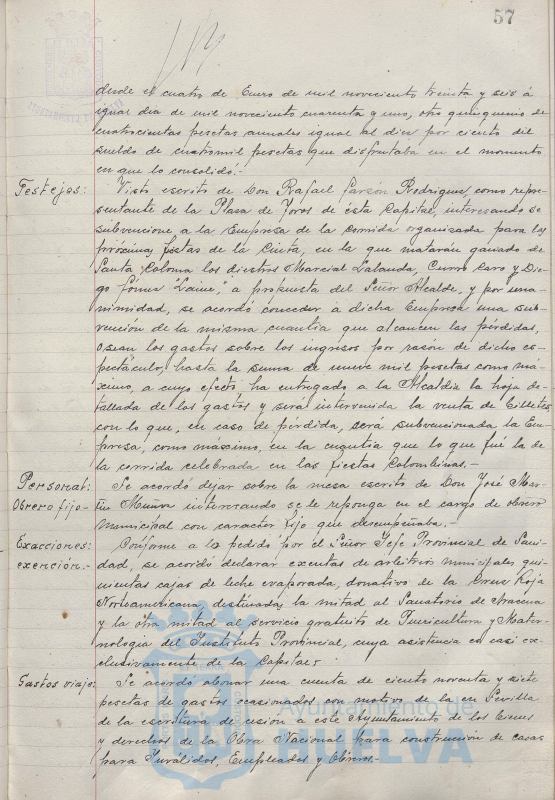 57
desde el cuatro de Enero de mil novecientos treinta y seis á
igual dia de mil novecientos cuarenta y uno, otro quinquenio de
cuatrocientas pesetas anuales igual al diez por ciento del
sueldo de cuatromil pesetas que disfrutaba en el momento
en que lo consolidó.-
Festejos: Visto escrito de Don Rafael Garzón Rodriguez, como repre-
sentante de la Plaza de Toros de ésta Capital, interesando se
subvencione a la Empresa de la corrida organizada para las
próximas fiestas de la Cinta, en la que matarán ganado de
Santa Coloma los diestros Marcial Lalanda, Curro Caro y Die-
go Gómez "Laine", a propuesta del Señor Alcalde, y por una-
nimidad, se acordó conceder a dicha Empresa una sub-
vención de la misma cuantia que alcancen las pérdidas,
o sean los gastos sobre los ingresos por razón de dicho es-
pectáculo, hasta la suma de nueve mil pesetas como má-
ximo, a cuyo efecto ha entregado a la Alcaldia la hoja de-
tallada de los gastos y será intervenida la venta de billetes,
con lo que, en caso de pérdida, será subvencionada la Em-
presa, como máximo, en la cuantia que lo que fué la de
la corrida celebrada en las fiestas Colombinas.-
Personal: Se acordó dejar sobre la mesa escrito de Don José Mar-
Obrero fijo- interesando se le reponga en el cargo de obrero
municipal con caracter fijo que desempeñaba.-
Exacciones: Conforme a lo pedido por el Señor Jefe Provincial de Sani-
exención.- dad, se acordó declarar exentas de arbitrios municipales qui-
nientas cajas de leche evaporada, donativo de la Cruz Roja
Norteamericana, destinadas la mitad al Sanatorio de Aracena
y la otra mitad al servicio gratuito de Puericultura y Mater-
nologia del Instituto Provincial, cuya asistencia es casi ex-
clusivamente de la Capital.
Gastos viaje: Se acordó abonar una cuenta de ciento noventa y siete
pesetas de gastos ocasionados con motivo de la en Sevilla
de la escritura de cesión a este Ayuntamiento de los bienes
y derechos de la Obra Nacional para construcción de casas
para Inválidos, Empleados y Obreros.-
Ayuntamiento de
HUELVA